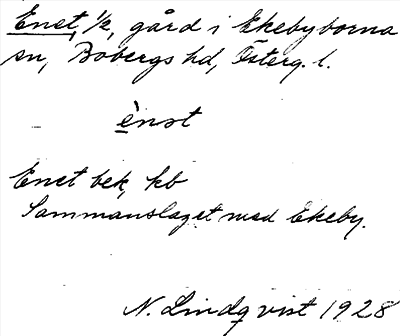 Enet, 1/2, gård i Ekebyborna
sn, Bobergs hd, Österg. l.
ènst
Enet bek, kb
Sammanslaget med Ekeby.
N. Lindqvist 1928